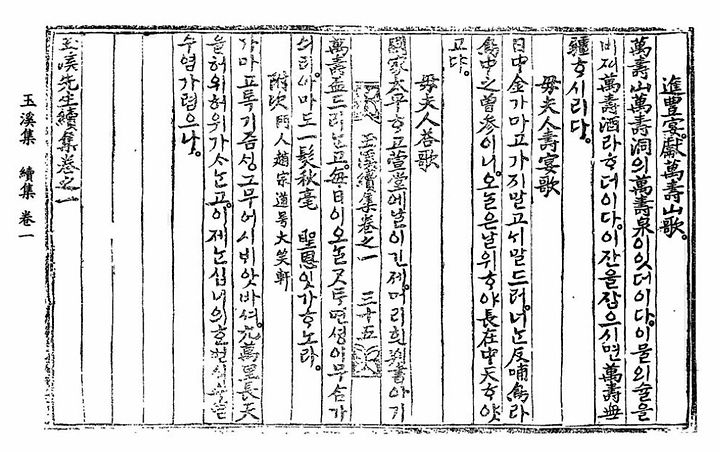 進豊宴。獻萬壽山歌。
萬壽山萬壽洞의萬壽泉이잇더이다。이믈의술을
비저萬壽酒라ᄒᆞ더이다。이잔을잡으시면萬壽無
疆ᄒᆞ시리다。
毋夫人壽宴歌
日中金가마고가지말고 말드러。너ᄂᆞᆫ反哺烏라
鳥中之曾參이니。오ᄂᆞᆯ은날위ᄒᆞ야長在中天ᄒᆞ얏
고댜。
毋夫人答歌
國家太平ᄒᆞ고萱堂에날이긴제。머리흰判書아기
玉溪續集卷之一 三十五
萬壽盃드리ᄂᆞᆫ고。每日이오ᄂᆞᆯᄀᆞᆺᄐᆞ면셩이무ᄉᆞᆷ가
싀리。아마도一髮秋毫 聖恩잇가ᄒᆞ노라。
附次 門人趙宗道號大笑軒
가마고톡기즘ᄉᆡᆼ그무어시 얏바셔。九萬里長天
을허위허위가ᄂᆞᆫ고。이제ᄂᆞᆫ십니의ᄒᆞᆫ번식
수염가렴으나。
玉溪先生續集卷之一
玉溪集 續集 卷一